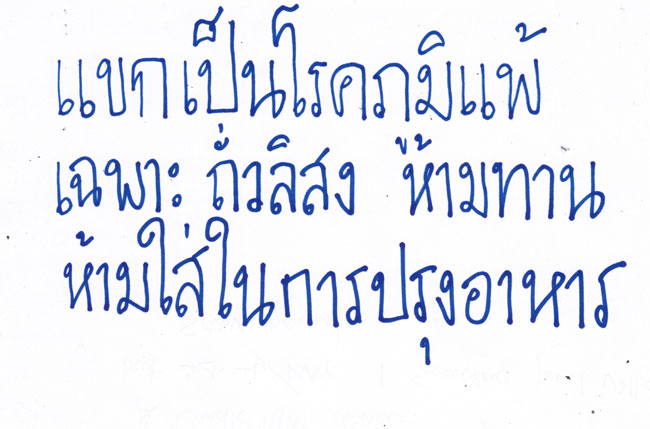 แขกเป็นโรคภมิแพ้
เฉพาะ ถั่วลิสง ห้ามทาน
ห้ามใส่ในการปรุงอาหาร